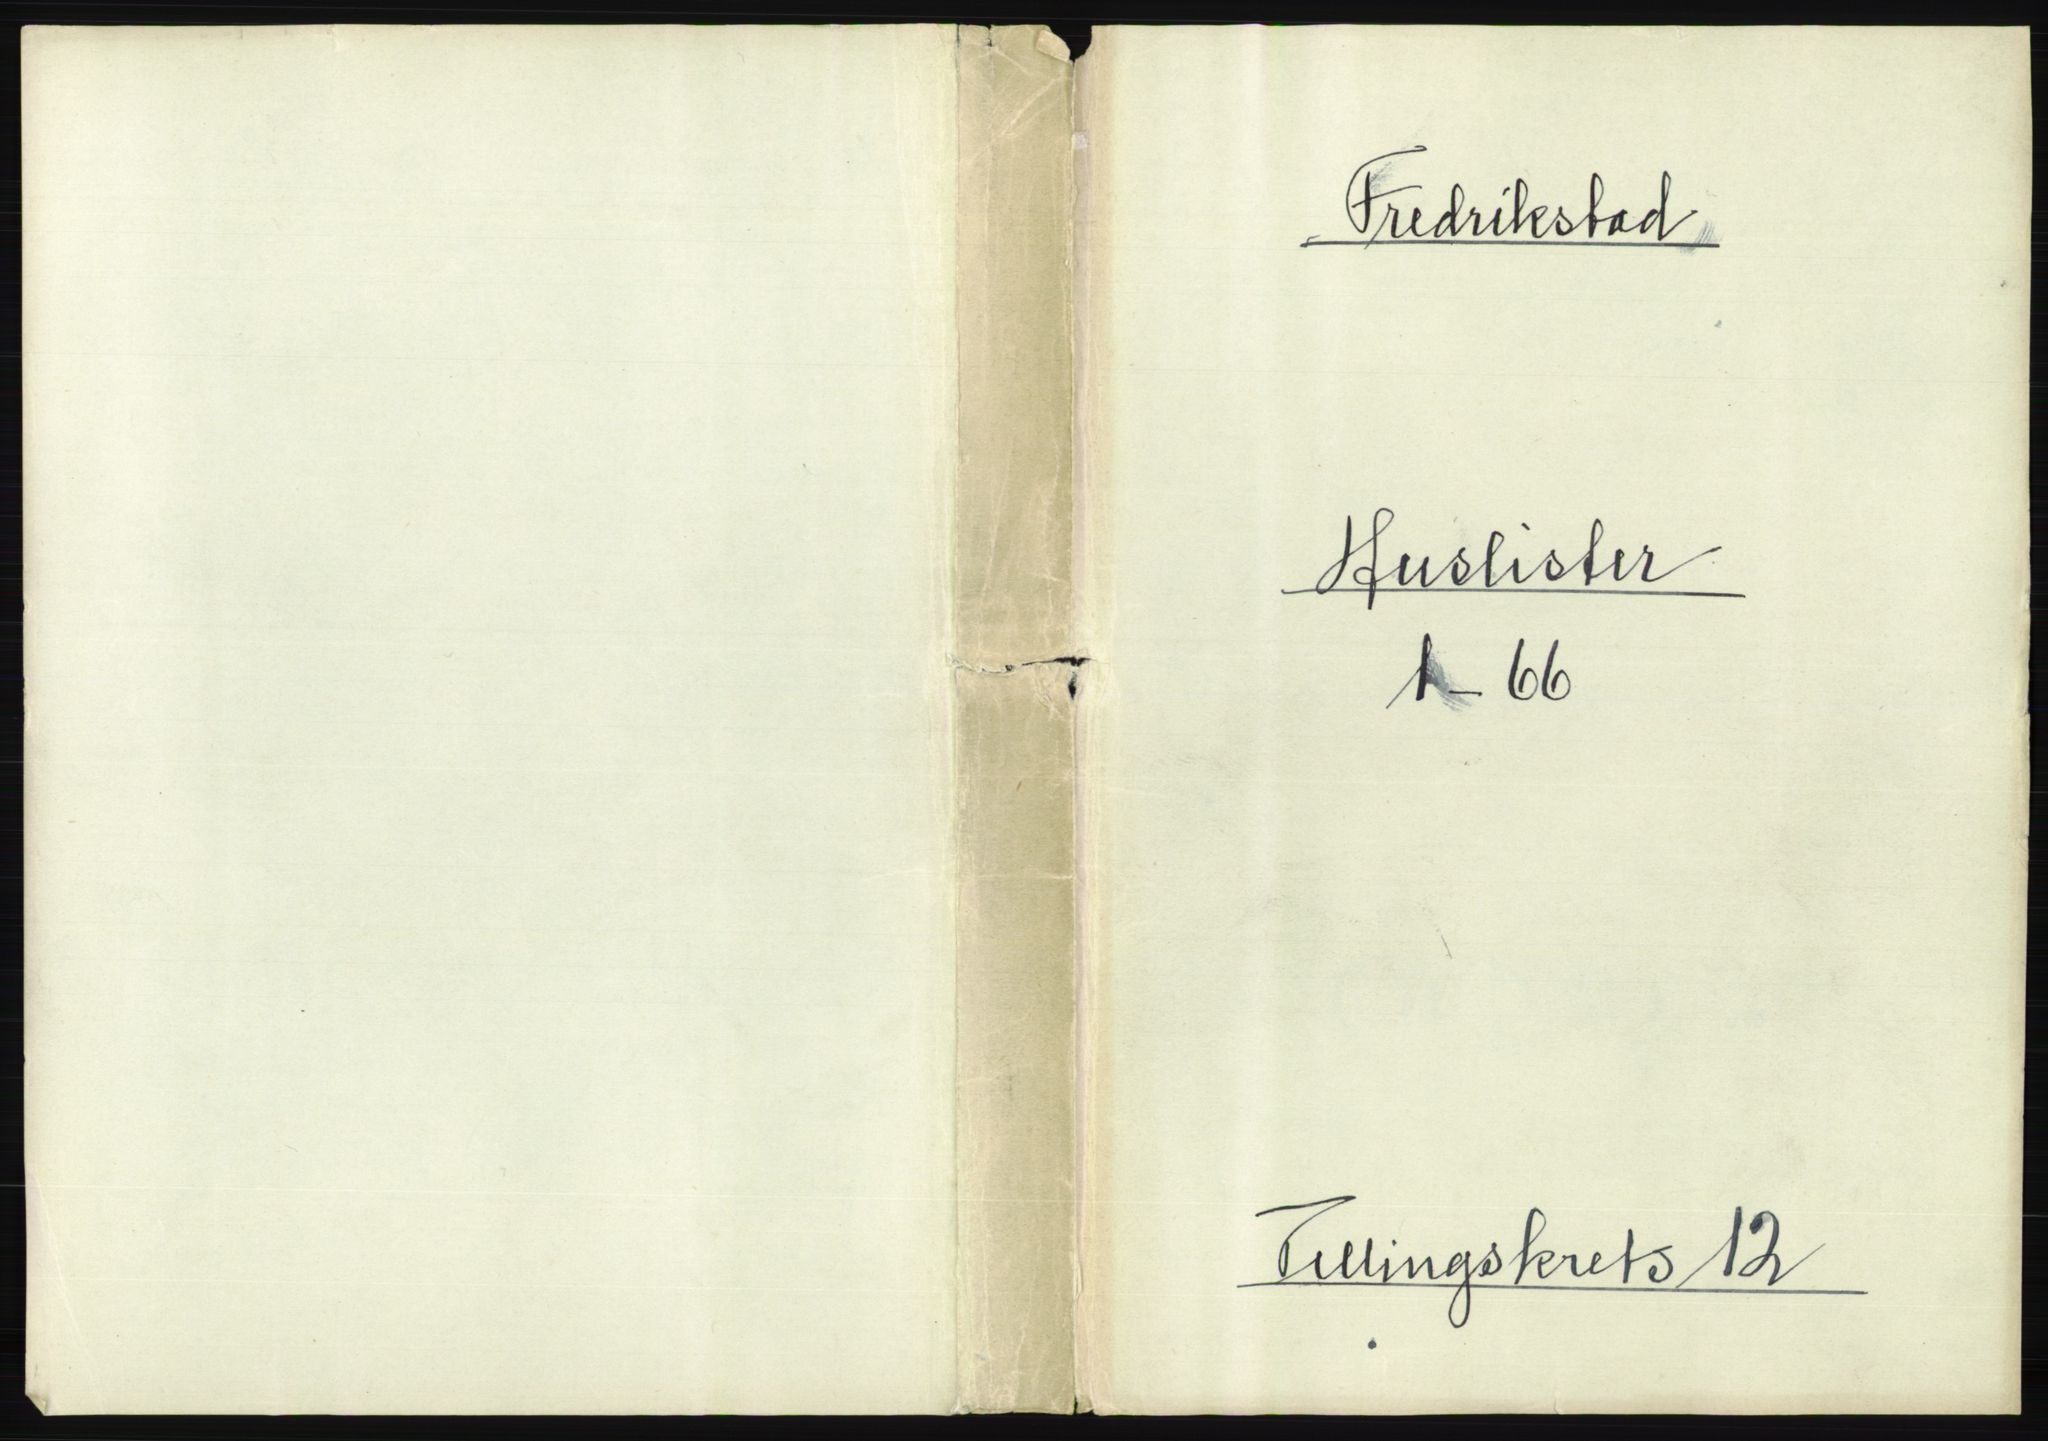 Fredrikstad
Huslister
1 - 66
Tellingskrets 12